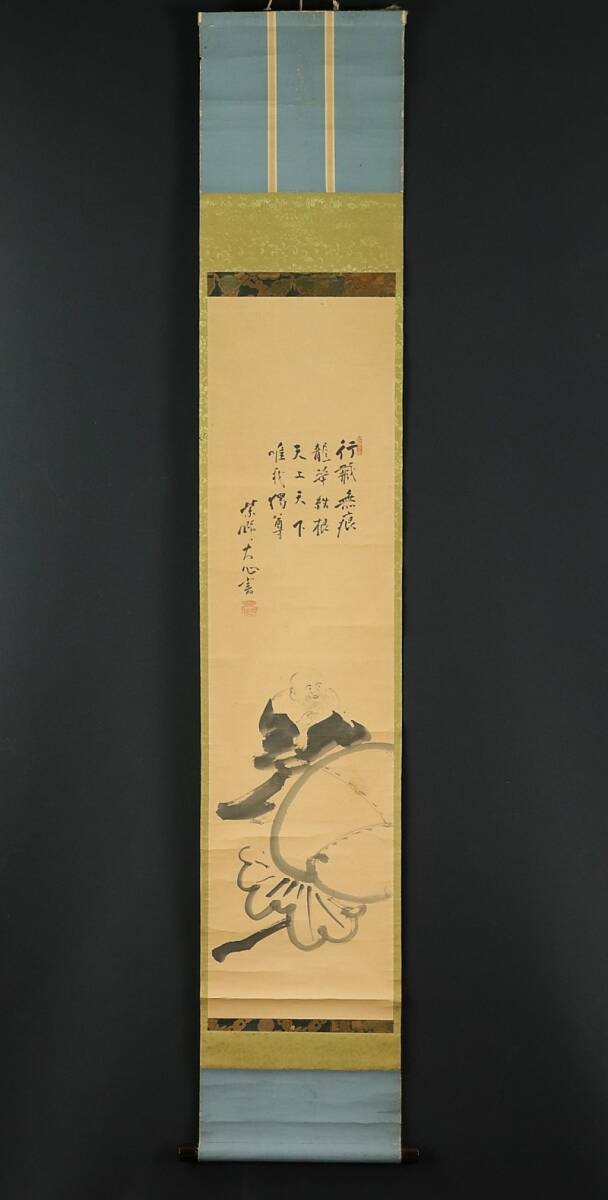 行無痕
龍根
天上天下
唯我獨尊
紫野大心書